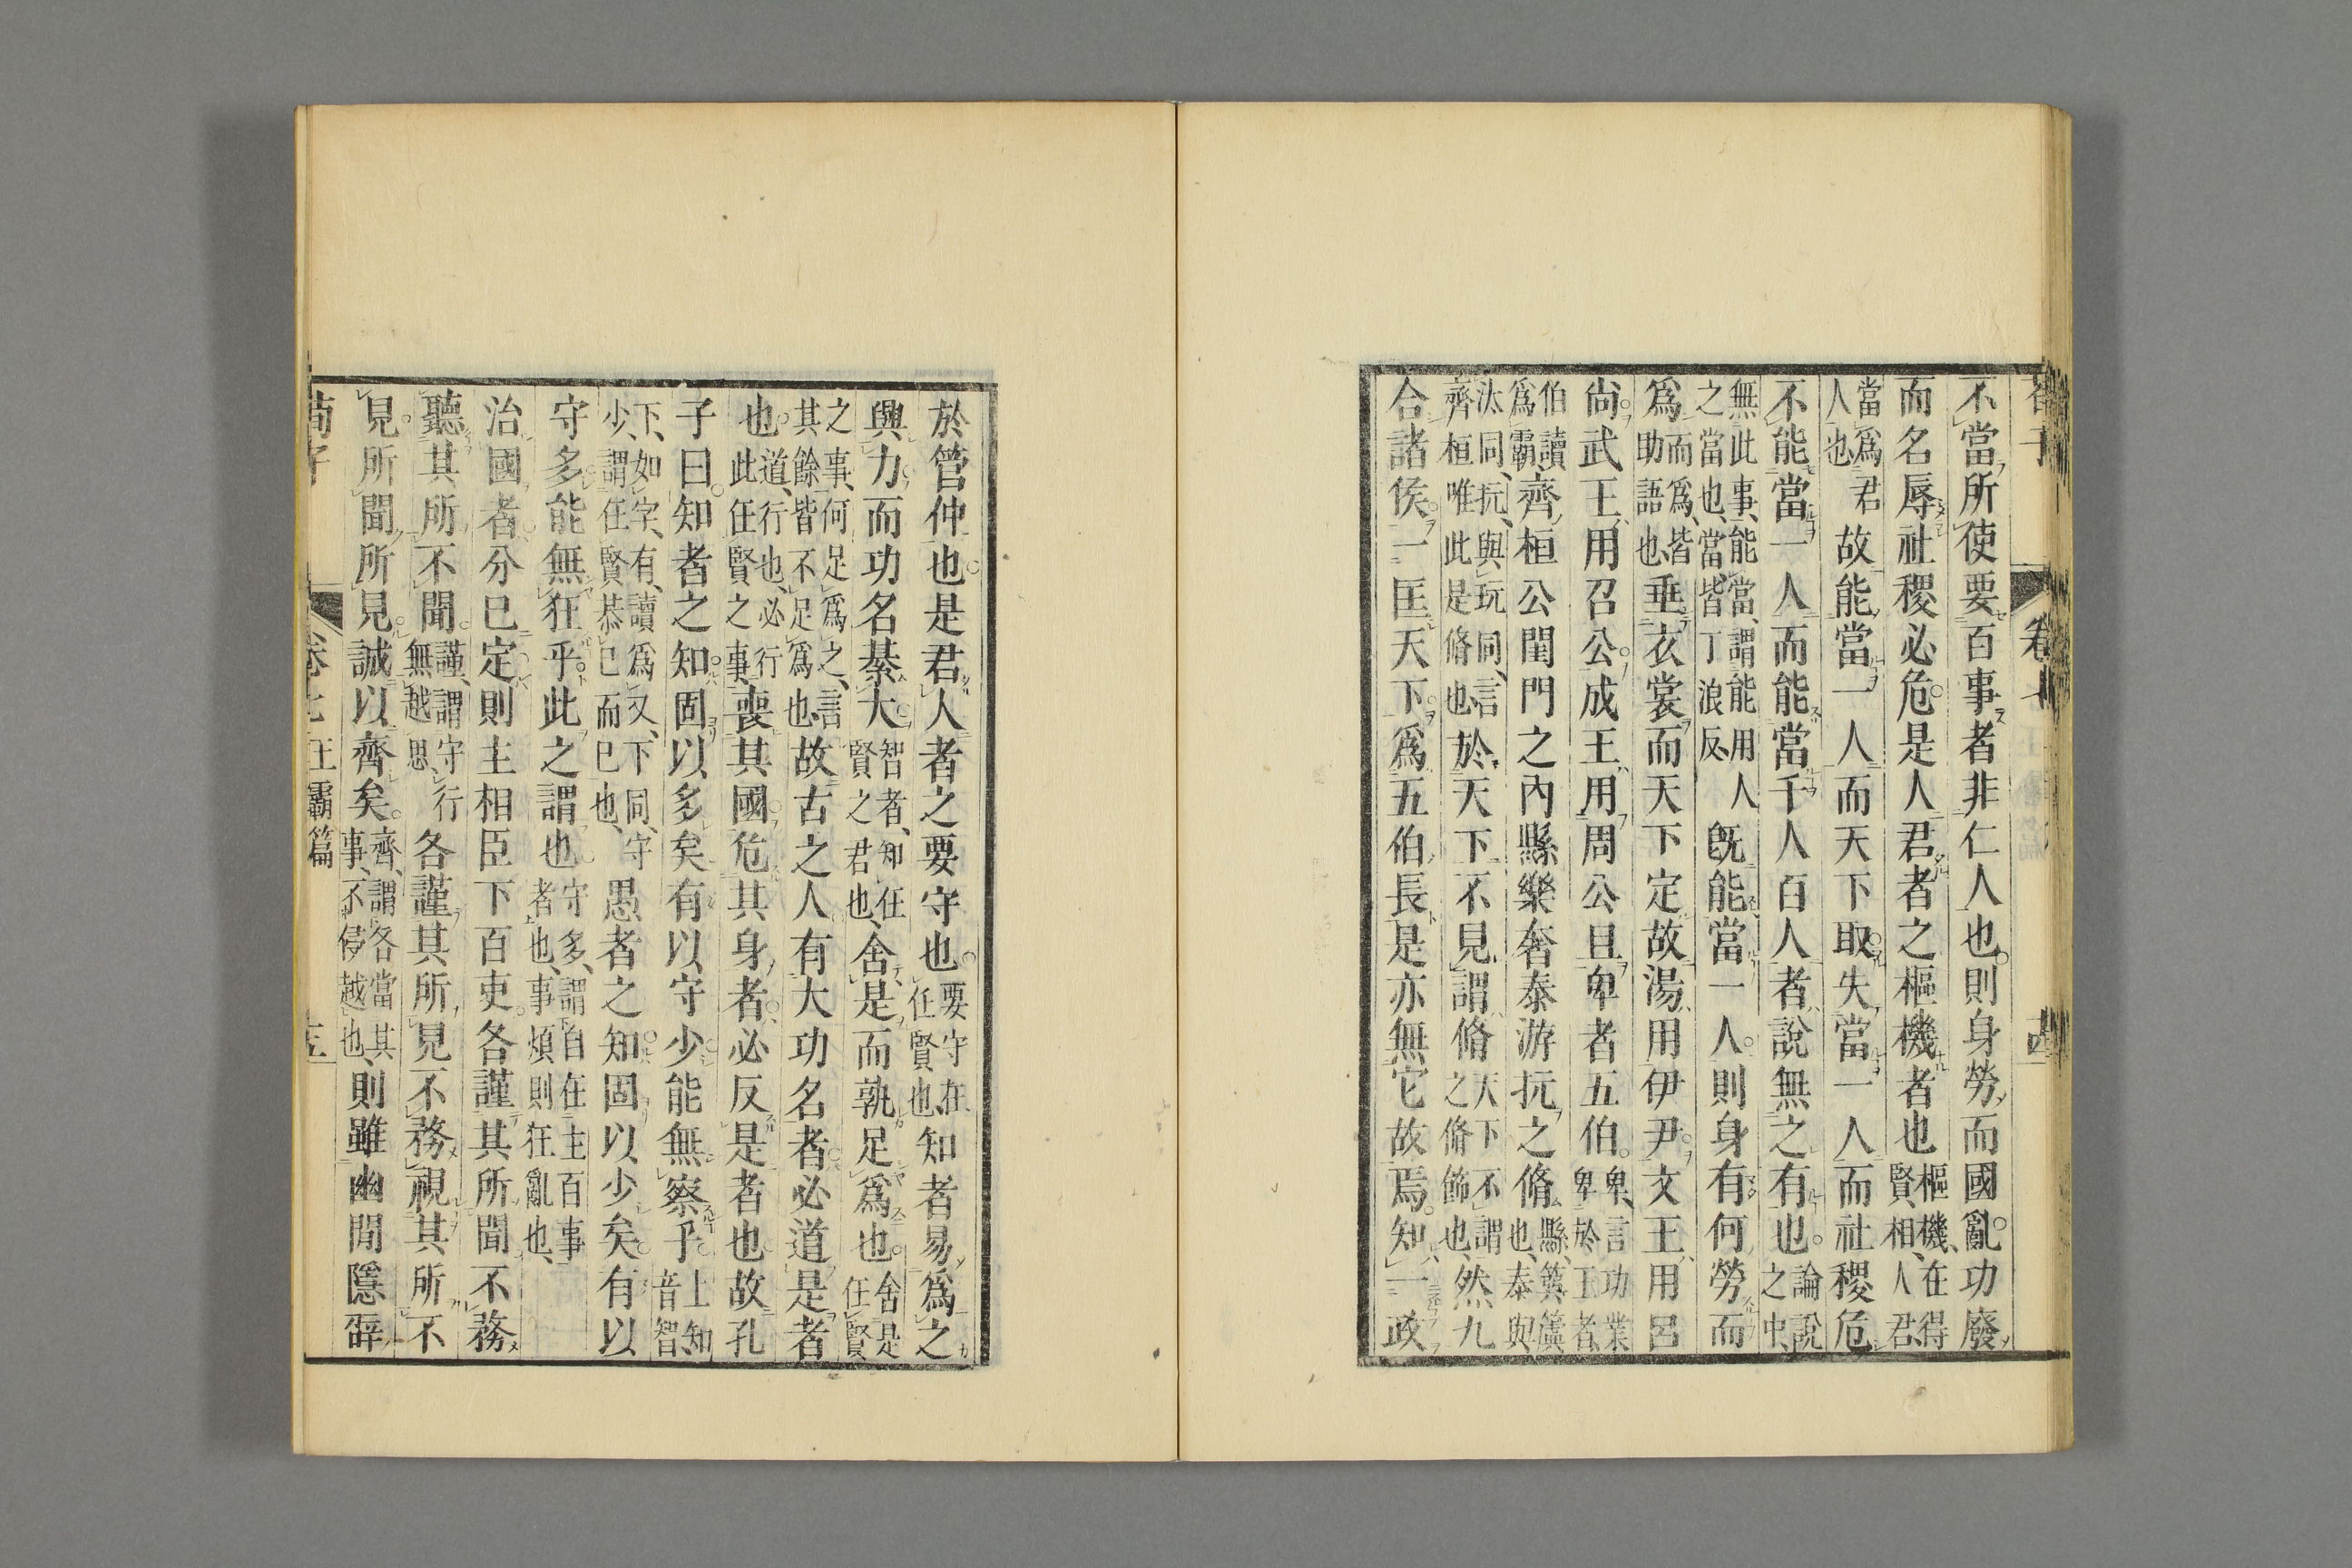 荀子 卷七
不當所使要百事者非仁人也則身勞而國亂功廢
而名辱社稷必危是人君者之樞機者也樞機在得賢相人君
當爲君人也故能當一人而天下取失當一人而社稷危
不能當一人而能當千人百人者說無之有也論說之中
無此事能當謂能用人之當也當皆丁浪反既能當一人則身有何勞而
爲而爲皆助語也垂衣裳而天下定故湯用伊尹文王用呂
尚武王用召公成王用周公旦卑者五伯卑言功業卑於王者
伯讀爲霸齊桓公閨門之內縣樂奢泰游抏之脩縣簨簴也泰與
汰同抏與玩同言齊桓唯此是脩也於天下不見謂脩天下不謂之脩飾也然九
合諸侯一匡天下爲五伯長是亦無它故焉知一政
於管仲也是君人者之要守也要守在任賢也知者易爲之
興力而功名綦大智者知任賢之君也舍是而孰足爲也舍是任賢
之事何足爲之言其餘皆不足爲也故古之人有大功名者必道是者
也道行也必行此任賢之事喪其國危其身者必反是者也故孔
子曰知者之知固以多矣有以守少能無察乎上知音智
下如字有讀爲又下同守少謂任賢恭已而已也愚者之知固以少矣有以
守多能無狂乎此之謂也守多謂自在主百事者也事煩則狂亂也
治國者分已定則主相臣下百吏各謹其所聞不務
聽其所不聞謹謂守行無越思各謹其所見不務視其所不
見所聞所見誠以齊矣齊謂各當其事不侵越也則雖幽閒隱辟
荀子 卷七 王霸篇